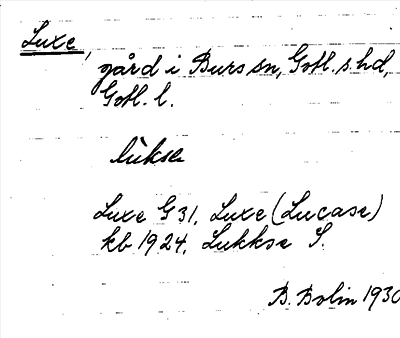 Luxe,
gård i Burs sn, Gotl. s. hd,
Gotl. l.
lùkse
Luxe G 31. Luxe (Lucase)
kb 1924. Lukkse S.
B. Bolin 1930